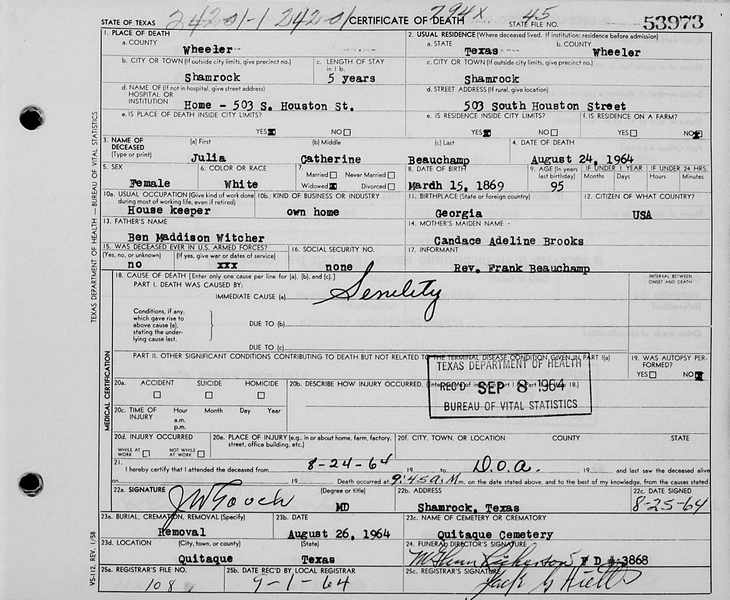 24201-1 24201 794x 45
STATE OF TEXAS CERTIFICATE OF DEATH STATE FILE NO. 53973
1. PLACE OF DEATH 2. USUAL RESIDENCE (Where deceased lived. If institution: residence before admission)
a. COUNTY a. STATE b. COUNTY
Wheeler Texas Wheeler
b. CITY OR TOWN (If outside city limits, give precinct no.) c. LENGTH OF STAY in 1 b. c. CITY OR TOWN (If outside city limits, give precinct no.)
Shamrock 5 years Shamrock
d. NAME OF (If not in hospital, give street address) HOSPITAL OR INSTITUTION d. STREET ADDRESS (If rural, give location)
Home - 503 S. Houston St. 503 South Houston Street
e. IS PLACE OF DEATH INSIDE CITY LIMITS? e. IS RESIDENCE INSIDE CITY LIMITS? f. IS RESIDENCE ON A FARM?
YES NO YES NO YES NO
3. NAME OF DECEASED (Type or print) (a) First (b) Middle (c) Last 4. DATE OF DEATH
Julia Catherine Beauchamp August 24, 1964
5. SEX 6. COLOR OR RACE 7. Married Never Married Widowed Divorced 8. DATE OF BIRTH 9. AGE (In years last birthday) IF UNDER 1 YEAR Months Days IF UNDER 24 HRS. Hours Minutes
Female White March 15, 1869 95
10a. USUAL OCCUPATION (Give kind of work done during most of working life, even if retired) 10b. KIND OF BUSINESS OR INDUSTRY 11. BIRTHPLACE (State or foreign country) 12. CITIZEN OF WHAT COUNTRY?
House keeper own home Georgia USA
13. FATHER'S NAME 14. MOTHER'S MAIDEN NAME -
Ben Maddison Witcher Candace Adeline Brooks
15. WAS DECEASED EVER IN U.S. ARMED FORCES? 16. SOCIAL SECURITY NO. 17. INFORMANT
(Yes, no, or unknown) (If yes, give war or dates of service)
no xxx none Rev. Frank Beauchamp
18. CAUSE OF DEATH [Enter only one cause per line for (a), (b), and (c).] INTERVAL BETWEEN ONSET AND DEATH
PART I. DEATH WAS CAUSED BY:
IMMEDIATE CAUSE (a) Senility
Conditions, if any, which gave rise to above cause (a), stating the underlying cause last.
DUE TO (b)
DUE TO (c)
PART II. OTHER SIGNIFICANT CONDITIONS CONTRIBUTING TO DEATH BUT NOT RELATED TO THE TERMINAL DISEASE CONDITION GIVEN IN PART I(a) 19. WAS AUTOPSY PERFORMED?
YES NO
TEXAS DEPARTMENT OF HEALTH
REC'D SEP 8 1964
BUREAU OF VITAL STATISTICS
20a. ACCIDENT SUICIDE HOMICIDE 20b. DESCRIBE HOW INJURY OCCURRED.
20c. TIME OF INJURY Hour Month Day Year
a.m.
p.m.
20d. INJURY OCCURRED 20e. PLACE OF INJURY (e.g., in or about home, farm, factory, street, office building, etc.) 20f. CITY, TOWN, OR LOCATION COUNTY STATE
WHILE AT WORK NOT WHILE AT WORK
21. I hereby certify that I attended the deceased from 8-24-64 19 to D.O.A. 19 and last saw the deceased alive
on 19 Death occurred at 9:45 a.M. m, on the date stated above, and to the best of my knowledge, from the causes stated
22a. SIGNATURE (Degree or title) 22b. ADDRESS 22c. DATE SIGNED
J W Gooch MD Shamrock, Texas 8-25-64
23a. BURIAL, CREMATION, REMOVAL (Specify) 23b. DATE 23c. NAME OF CEMETERY OR CREMATORY
Removal August 26, 1964 Quitaque Cemetery
23d. LOCATION (City, town, or county) (State) 24. FUNERAL DIRECTOR'S SIGNATURE
Quitaque Texas Richerson F D # 3868
25a. REGISTRAR'S FILE NO. 25b. DATE REC'D BY LOCAL REGISTRAR 25c. REGISTRAR'S SIGNATURE
108 9-1-64 Jack
TEXAS DEPARTMENT OF HEALTH — BUREAU OF VITAL STATISTICS
MEDICAL CERTIFICATION
VS-112, REV. 1/58